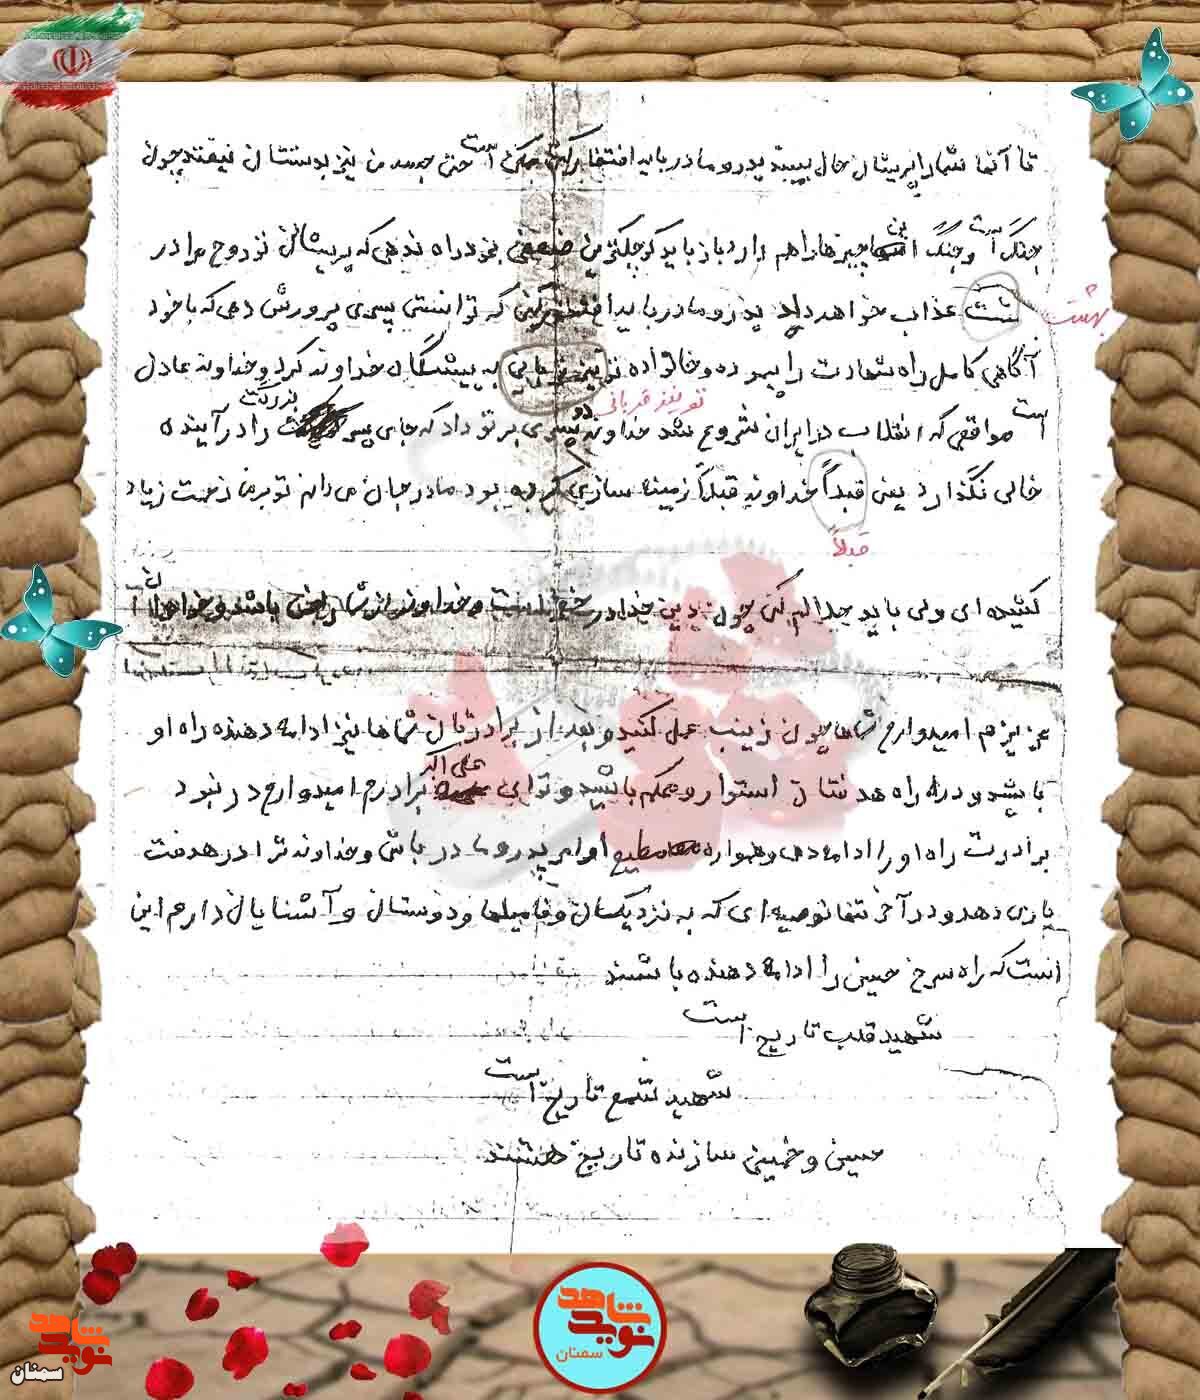 تا آنها شما را پریشان حال ببینند پدر و مادر باید افتخار کنی ممکن است حتی جسد من نیز بدستتان نیفتد چون
جنگ است و جنگ این چیزها را هم دارد باز باید کوچکترین ضعفی بخود راه ندهی که پریشانی تو روح مرا در
بهشت عذاب خواهد داد پدر و مادر باید افتخار کنی که توانستی پسری پرورش دهی که با خود
آگاهی کامل راه شهادت را پیموده و خانواده تو نیز قربانی به پیشگاه خداوند کرد و خداوند عادل
تو نیز قربانی
است مواقعی که انقلاب در ایران شروع شد خداوند دو پسری بر تو داد که جای پسر بزرگت را در آینده
خالی نگذارد یعنی قبلاً خداوند قبلاً زمینه سازی کرده بود مادر جان می دانم تو برما زحمت زیاد
قبلاً
کشیده ای ولی باید حلالم کنی چون دین خدا در خطر است و خداوند از شما راضی باشد و خواهران
عزیزم امیدوارم شماها چون زینب عمل کنید و بعد از برادرتان شماها نیز ادامه دهنده راه او
باشید و در راه هدفتان استوار و محکم باشید و توای علی اکبر برادرم امیدوارم در نبود
برادرت راه او را ادامه دهی و همواره مطیع اوامر پدر و مادر باشی و خداوند ترا در هدفت
یاری دهد و در آخر تنها توصیه ای که به نزدیکان و فامیلها و دوستان و آشنایان دارم این
است که راه سرخ حسینی را ادامه دهنده باشند
شهید قلب تاریخ است
شهید شمع تاریخ است
حسین و خمینی سازنده تاریخ هستند
نوید شاهد
سمنان
نوید شاهد
سمنان